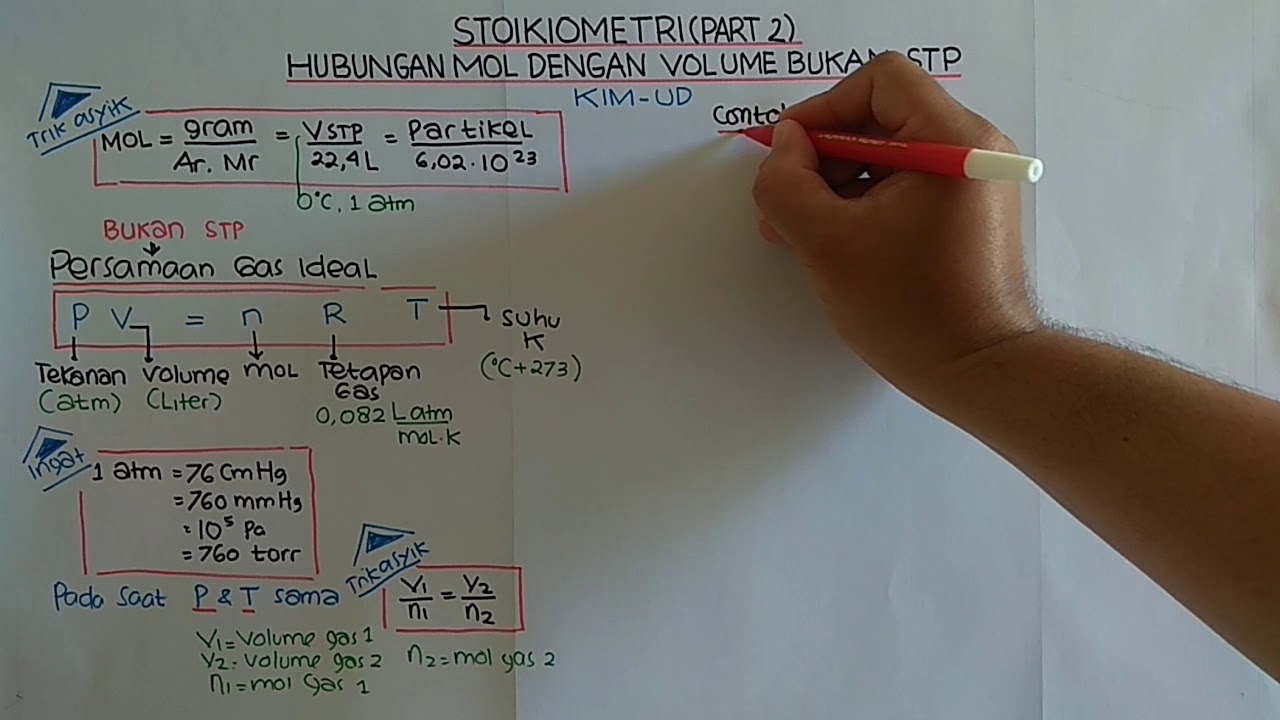 STOIKIOMETRI (PART 2)
HUBUNGAN MOL DENGAN VOLUME BUKAN STP
KIM-UD
Trik asyik
MOL = gram / Ar. Mr = VSTP / 22,4 L = Partikel / 6,02 . 10²³
0°C, 1 atm
Bukan STP
Persamaan Gas Ideal
P V = n R T
Tekanan (atm)
Volume (Liter)
mol
Tetapan Gas
0,082 L atm / mol.K
Suhu
K
(°C+273)
Ingat
1 atm = 76 CmHg
= 760 mmHg
= 10⁵ Pa
= 760 torr
Pada saat P & T sama
Trik asyik
V1 / n1 = V2 / n2
V1 = Volume gas 1
V2 = Volume gas 2
n1 = mol gas 1
n2 = mol gas 2